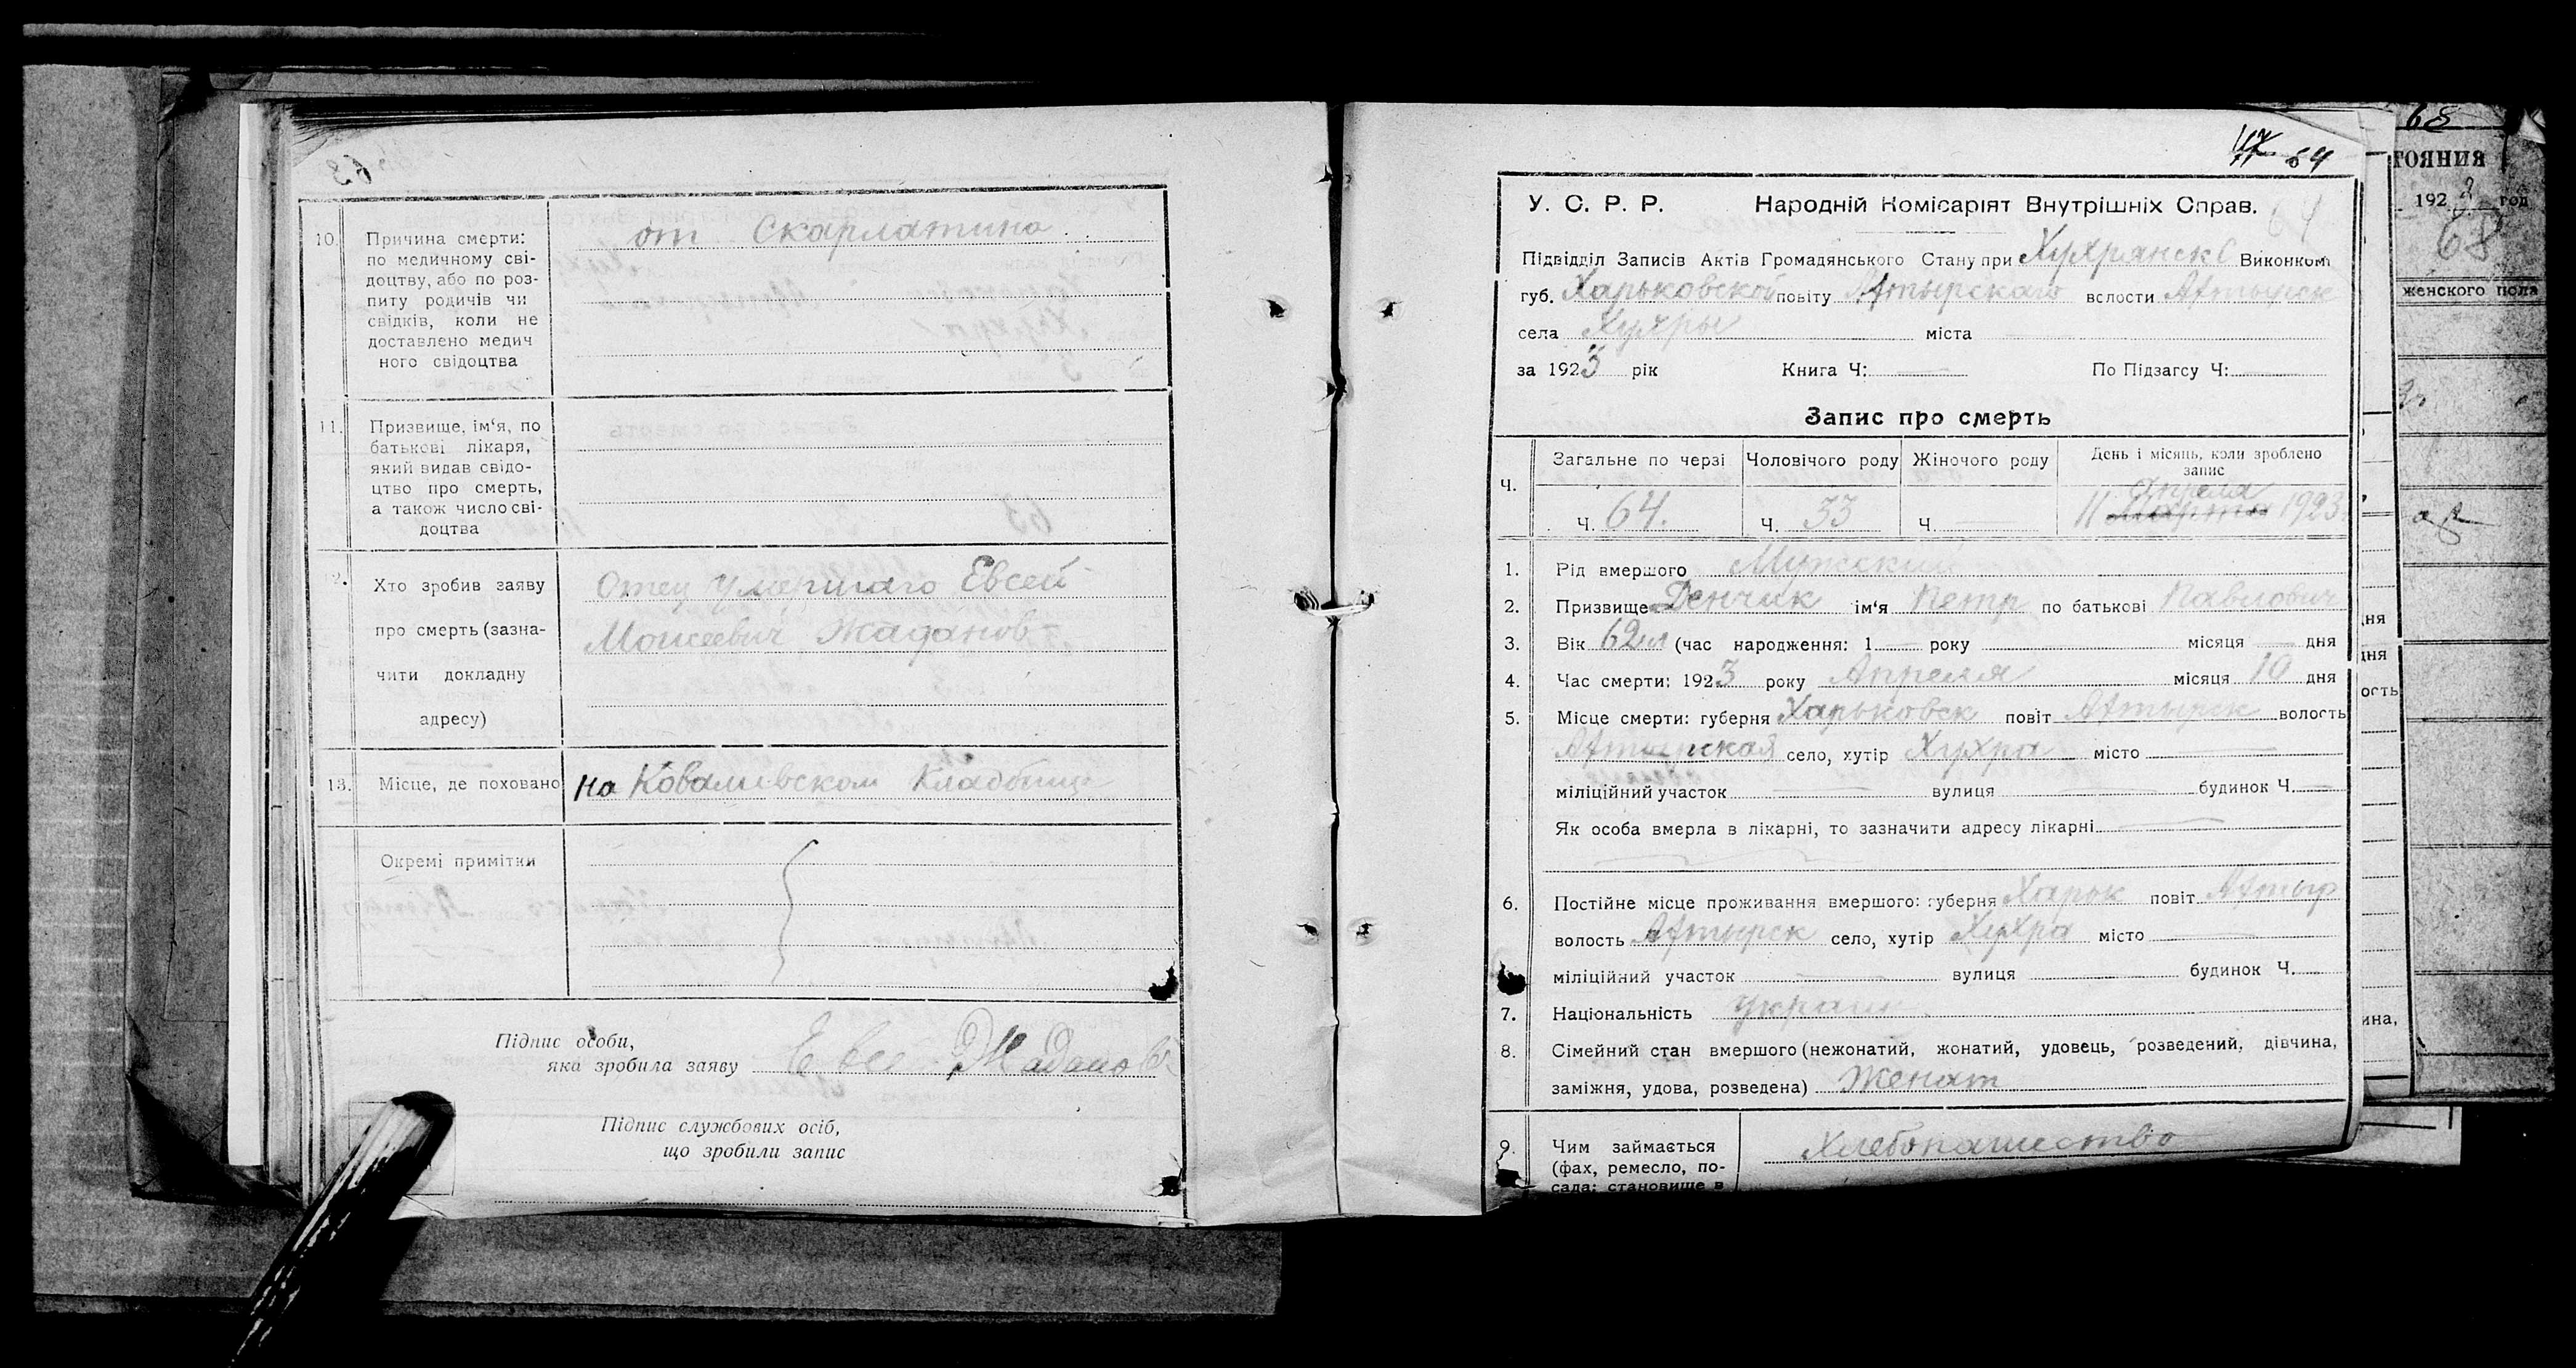 63
10. Причина смерти: по медичному сві-доцтву, або по роз-питу родичів чи свідків, коли не доставлено медич ного свідоцтва
от Скарлатина
11. Призвище, ім‘я, по батькові лікаря, який видав свідо-цтво про смерть, а також число сві-доцтва
12. Хто зробив заяву про смерть (зазна-чити докладну адресу)
Отец умершаго Евсей
Моисеевич Жаданов
13. Місце, де поховано На Ковалевском Кладбище
Окремі примітки
Підпис особи,
яка зробила заяву Евсе Жаданов
Підпис службових осіб,
що зробили запис
64
У. С. Р. Р. Народній Комісаріят Внутрішніх Справ.
64
Підвідділ Записів Актів Громадянського Стану при Хухрянск Виконком
губ. Харьковской повіту Ахтырскаго волости Ахтырск
села Хухры міста
за 1923 рік Книга Ч: По Підзагсу Ч:
Запис про смерть
Ч. Загальне по черзі Чоловічого роду Жіночого роду День і місяць, коли зроблено запис
Апреля
Ч. 64. Ч. 33 Ч 11 Марта 1923
1. Рід вмершого Мужский
2. Призвище Денчик ім‘я Петр по батькові Павлович
3. Вік 62 л (час народження: 1 року місяця дня
4. Час смерти: 1923 року Апреля місяця 10 дня
5. Місце смерти: губерня Харьковск повіт Ахтырск волость
Ахтырская село, хутір Хухра місто
міліційний участок вулиця будинок Ч.
Як особа вмерла в лікарні, то зазначити адресу лікарні
6. Постійне місце проживання вмершого: губерня Харьк повіт Ахтыр
волость Ахтырск село, хутір Хухра місто
міліційний участок вулиця будинок Ч.
7. Національність Украин
8. Сімейний стан вмершого (нежонатий, жонатий, удовець, розведений, дівчина,
заміжня, удова, розведена) Женат
9. Чим займається (фах, ремесло, по-сада; становище в
Хлебопашество
68
тояния
1923 год
68
женского пола